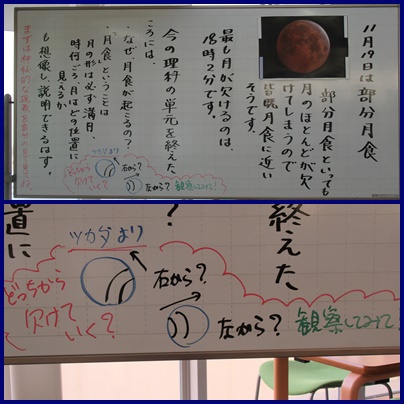 11月19日は部分月食
部分月食といっても
月のほとんどが欠
けてしまうので
皆既月食に近い
そうです。
最も月が欠けるのは、
18時2分です。
今の理科の単元を終えた
ころには、
・なぜ、月食が起こるの?
・月食ということは
月の形は必ず満月、
時何ごろ、月はどの位置に
見えるか
も想像し、説明できるはず。
ツカダより
どっちから
欠けて
いく?
右から?
左から?
観察してみて!
終えた
?
置に
ツカダより
どっちから
欠けて
いく?
右から?
左から?
観察してみて!